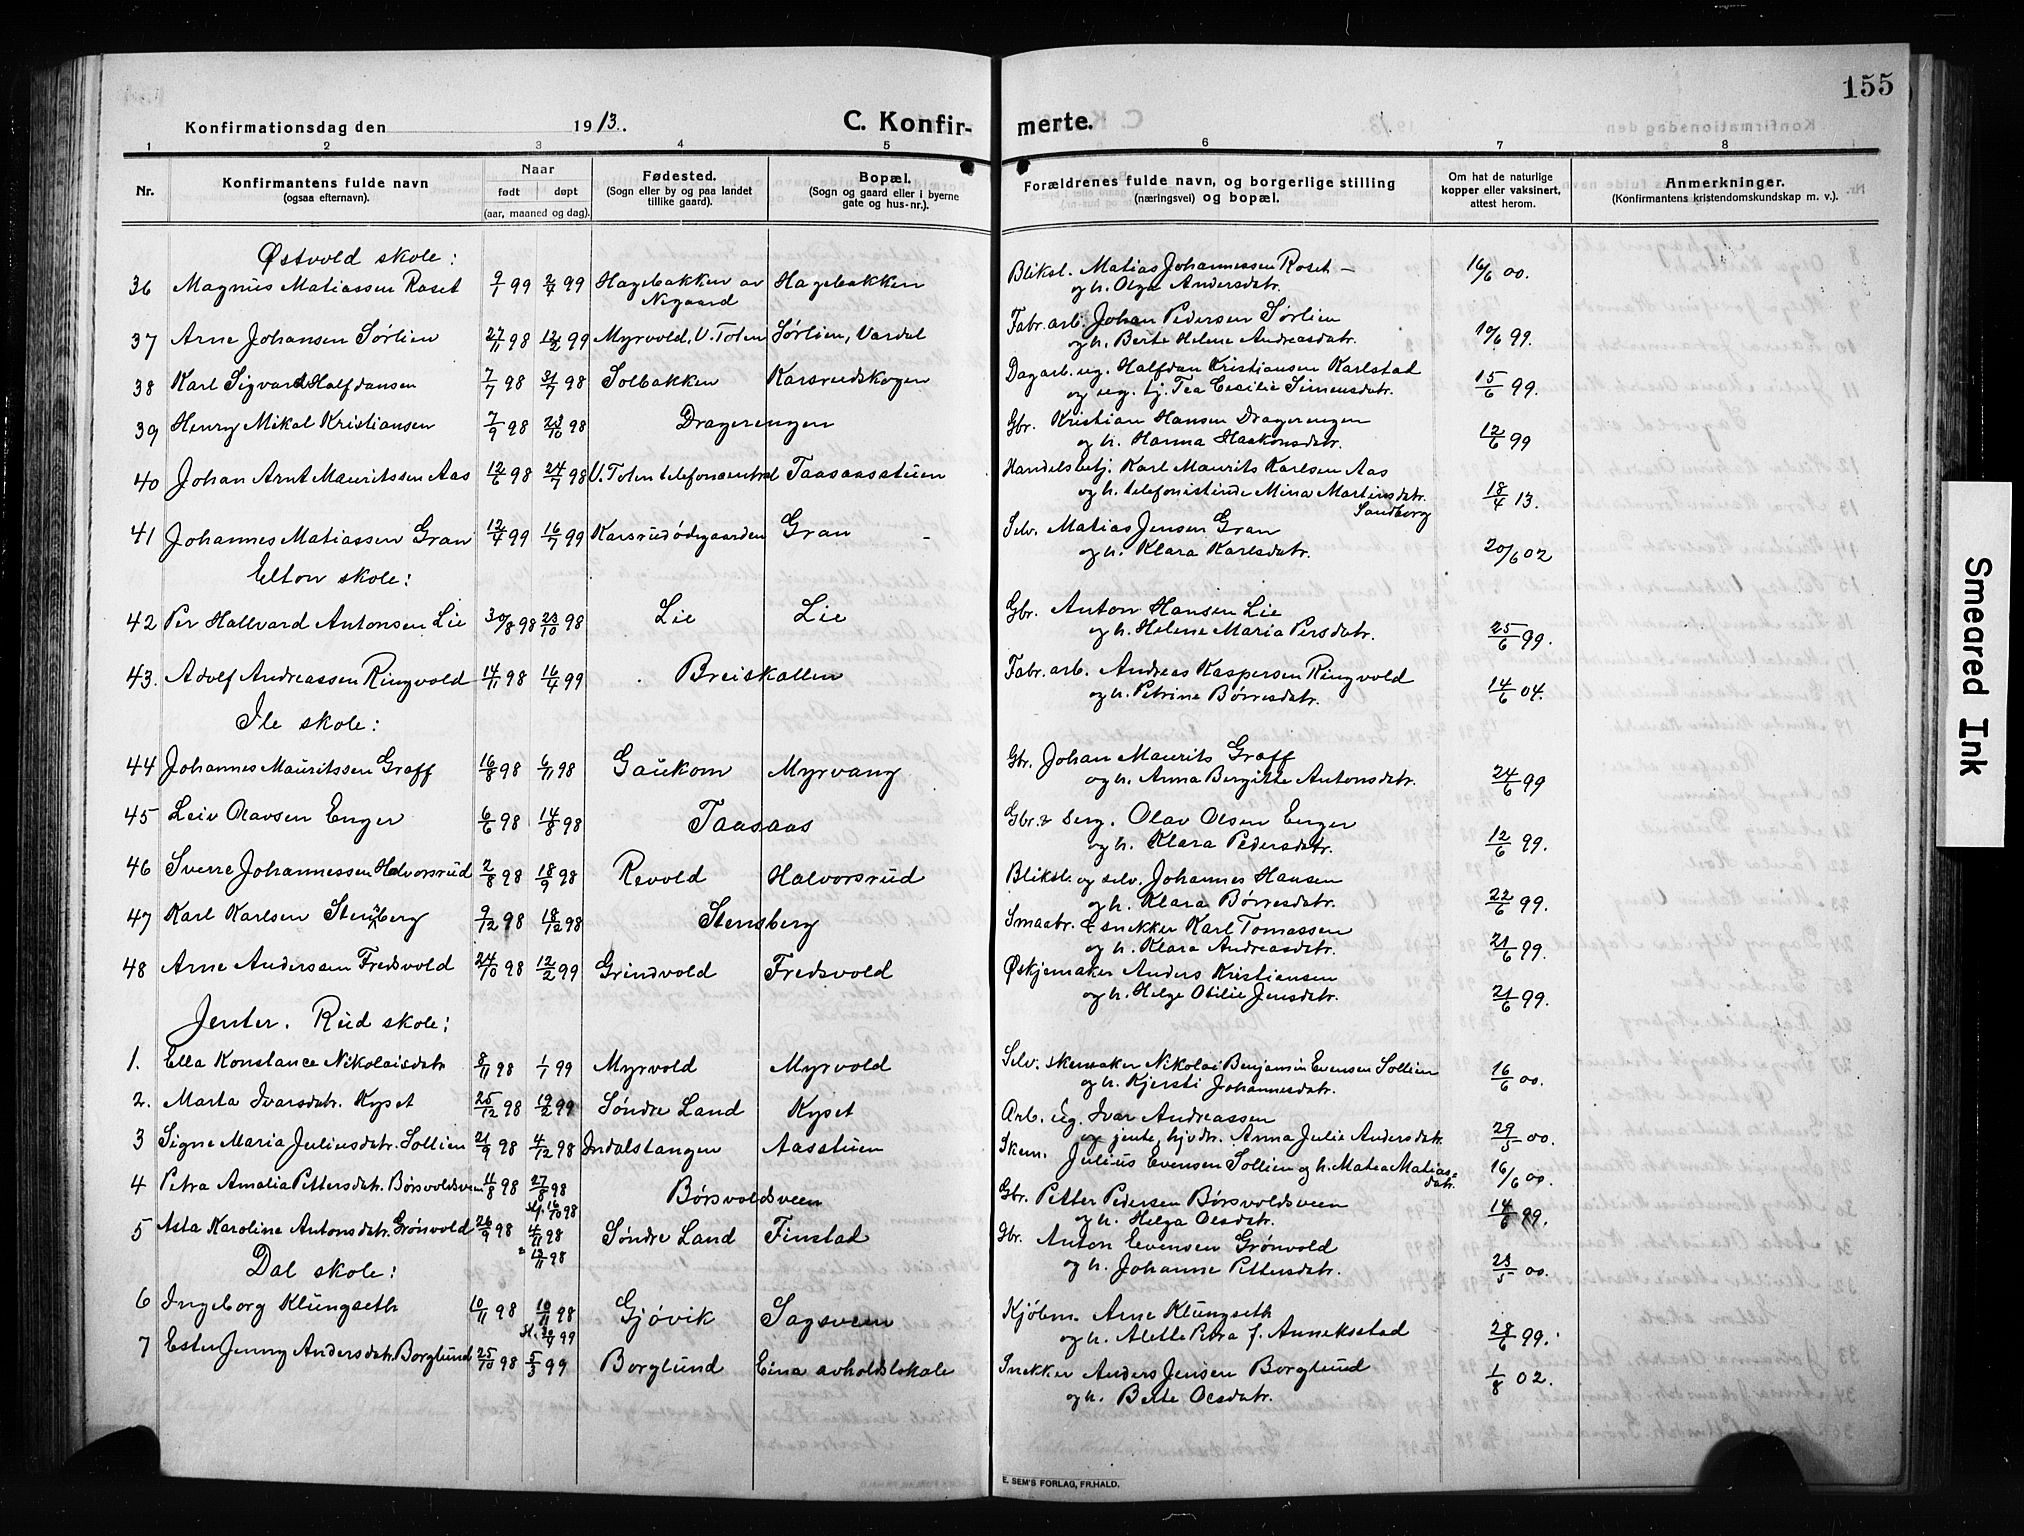 155
Konfirmationsdag den 1913. C. Konfir- merte.
1 2 3 4 5 6 7 8
Nr. Konfirmantens fulde navn (ogsaa efternavn). Naar født døpt (aar, maaned og dag). Fødested. (Sogn eller by og paa landet tillike gaard). Bopæl. (Sogn og gaard eller i byerne gate og hus-nr.). Forældrenes fulde navn, og borgerlige stilling (næringsvei) og bopæl. Om hat de naturlige kopper eller vaksinert, attest herom. Anmerkninger. (Konfirmantens kristendomskundskap m. v.).
Østvold skole:
36 Magnus Matiassen Roset 9/1 99 2/4 99 Hagebakken av Nygaard Hagebakken Bliksl. Matias Johannessen Roset – og h. Olga Andersdatr. 16/6 00.
37 Arne Johansen Sørlien 27/11 98 12/2 99 Myrvold, V. Toten Sørlien, Vardal Fabr. arb. Johan Pedersen Sørlien og h. Berte Helene Andreasdatr. 10/6 99.
38 Karl Sigvard Halfdansen 7/7 98 31/7 98 Solbakken Karsrudskogen Dagarb. ug. Halfdan Kristiansen Karlstad og ug. tj. Tea Cecilie Simensdatr. 15/6 99.
39 Henry Mikal Kristiansen 7/9 98 23/10 98 Dragerengen Gbr. Kristian Hansen Dragerengen og h. Hanna Haakonsdatr. 12/6 99
40 Johan Arnt Mauritssen Aas 12/6 98 24/7 98 V. Toten telefoncentral Taasaasstuen Handelsbetj. Karl Maurits Karlsen Aas og h. telefonistinde Mina Martinsdatr. Sandberg 18/4 13.
41 Johannes Matiassen Gran 12/4 99 16/7 99 Karsrudødegaarden Gran Selv. Matias Jensen Gran og h. Klara Karlsdatr. 20/6 02
Elton skole:
42 Per Hallvard Antonsen Lie 30/8 98 23/10 98 Lie Lie Gbr. Anton Hansen Lie og h. Helene Maria Persdatr. 25/6 99.
43. Adolf Andreassen Ringvold 14/11 98 16/4 99 Breiskallen Fabr. arb. Andreas Kaspersen Ringvold og h. Petrine Børresdatr. 14/6 04.
Ile skole:
44 Johannes Mauritssen Graff 16/8 98 6/11 98 Gaukom Myrvang Gbr. Johan Maurits Graff og h. Anna Bergitte Antonsdatr. 24/6 99
45 Leiv Olavsen Enger 6/6 98 14/8 98 Taasaas Gbr. & serg. Olav Olsen Enger og h. Klara Pedersdatr. 12/6 99.
46 Sverre Johannessen Halvorsrud 2/8 98 18/9 98 Revold Halvorsrud Bliksl. og selv. Johannes Hansen og h. Klara Børresdatr. 22/6 99.
47 Karl Karlsen Stensberg 9/12 98 18/12 98 Stensberg Smaabr. & snekker Karl Tomassen og h. Klara Andreasdatr. 21/6 99.
48 Arne Anderssen Fredsvold 24/10 98 12/2 99 Grindvold Fredsvold Øskjemaker Anders Kristiansen og h. Helge Otilie Jensdatr. 21/6 99.
Jenter. Rud skole:
1. Ella Konstance Nikolaisdatr 8/11 98 1/1 99 Myrvold Myrvold Selv. skemaker Nikolai Benjamin Evensen Sollien og h. Kjersti Johannesdatr. 16/6 00.
2. Marta Ivarsdatr. Kyset 25/12 98 19/2 99 Søndre Land Kyset Arb. ug. Ivar Andreassen og jente, hjvdr. Anna Julie Andersdatr. 29/5 00.
3 Signe Maria Juliusdatr. Sollien 21/9 98 4/12 98 Indalstangen Aasstuen Skem. Julius Evensen Sollien og h. Matea Matiasdatr. 16/6 00.
4 Petra Amalia Pettersdatr. Børsvoldsveen 11/8 98 27/8 98 st. 16/10 98 Børsvoldsveen Gbr. Petter Pedersen Børsvoldsveen og h. Helga Olsdatr. 14/6 99.
5 Asta Karoline Antonsdatr. Grønvold 26/9 98 4/11 98 13/11 98 Søndre Land Finstad Gbr. Anton Evensen Grønvold og h. Johanne Pettersdatr. 23/5 00.
Dal skole:
6 Ingeborg Klungseth 10/11 98 10/11 98 st. 30/4 99 Gjøvik Sagsveen Kjøbm. Arne Klungseth og h. Alette Petra f. Anneksstad 28/6 99.
7 Ester Jenny Andersdatr. Borglund 25/10 98 5/3 99 Borglund Eina avholdskole Snekker Anders Jensen Borglund og h. Berte Olsdatr. 1/8 02.
E. SEM'S FORLAG, FR.HALD.
Smeared Ink